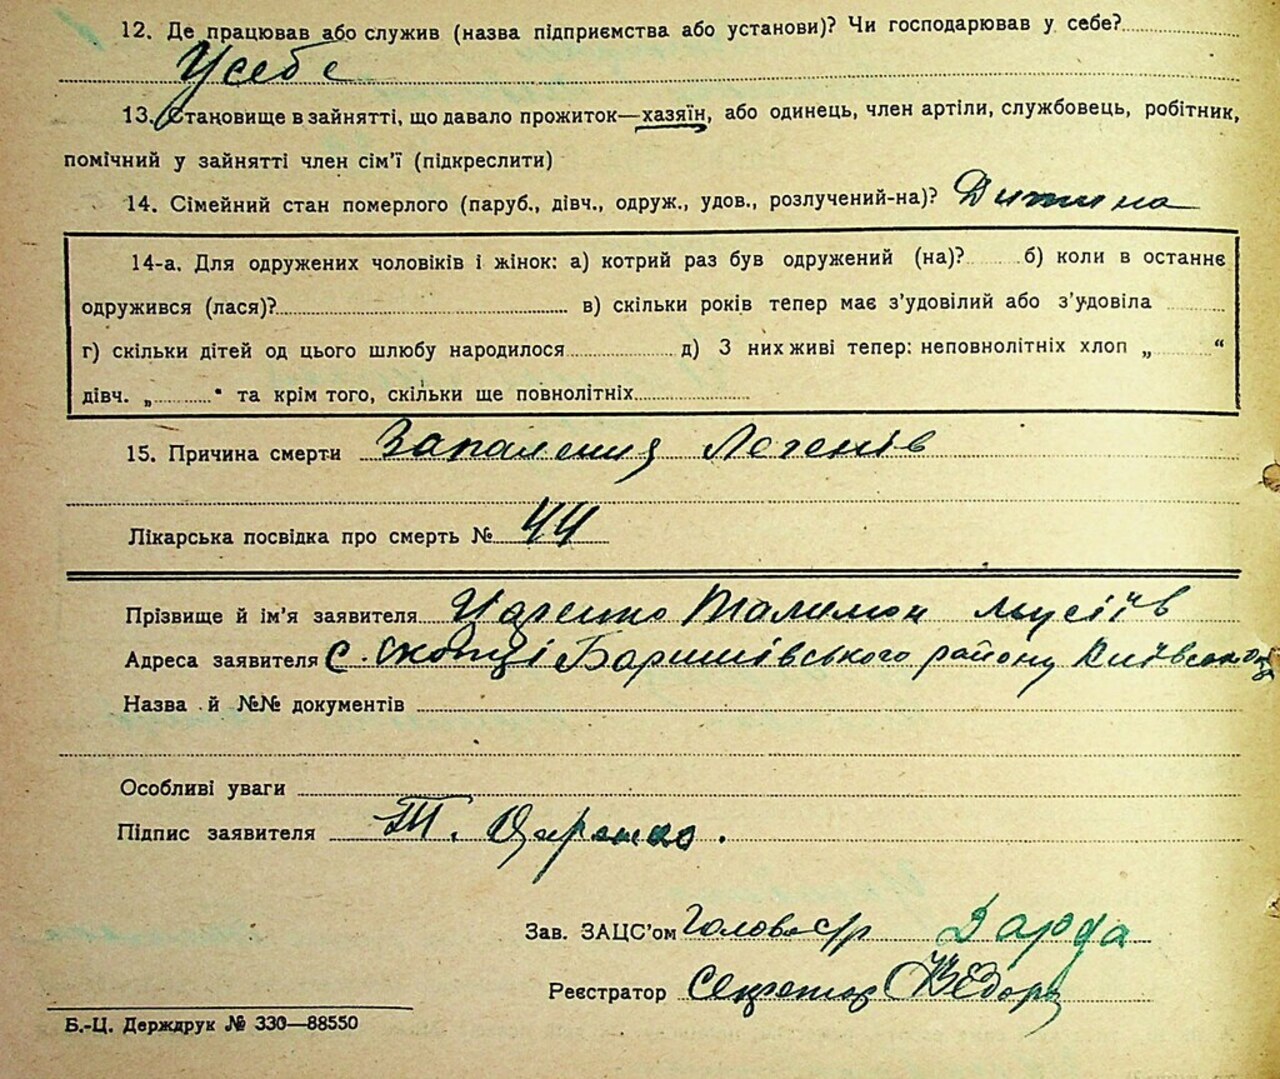 12. Де працював або служив (назва підприємства або установи)? Чи господарював у себе?
У себе
13. Становище в зайнятті, що давало прожиток—хазяїн, або одинець, член артіли, службовець, робітник,
помічний у зайнятті член сім'ї (підкреслити)
14. Сімейний стан померлого (паруб., дівч., одруж., удов., розлучений-на)? Дитина
14-а. Для одружених чоловіків і жінок: а) котрий раз був одружений (на)? б) коли в останнє
одружився (лася)? в) скільки років тепер має з'удовілий або з'удовіла
г) скільки дітей од цього шлюбу народилося д) З них живі тепер: неповнолітніх хлоп „ “
дівч. „ “ та крім того, скільки ще повнолітніх
15. Причина смерти Запалення Легенів
Лікарська посвідка про смерть № 44
Прізвище й ім'я заявителя Царенко Талимон Мусіїв
Адреса заявителя с. Скопці Баришівського району Київської
Назва й №№ документів
Особливі уваги
Підпис заявителя Т. Царенко.
Зав. ЗАЦС'ом Голова с/р Дарда
Реєстратор Секретар
Б.-Ц. Держдрук № 330—88550